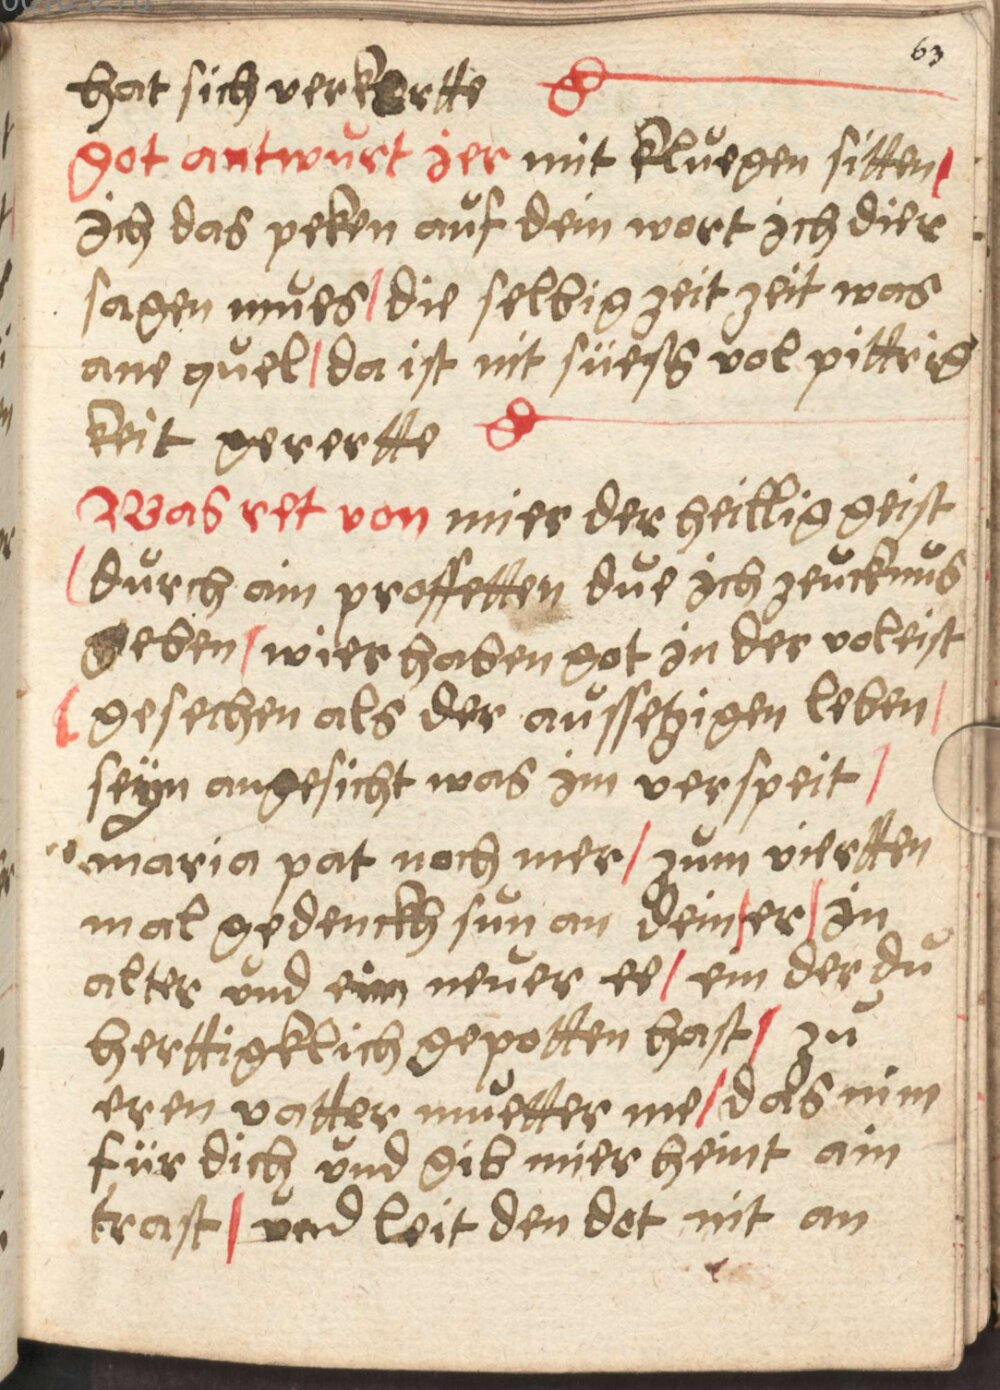 63
hat sich verkertte
got antwurt jer mit kluegen sitten /
jch das peken auf dein wort jch dier
sagen mues / die selbig zeit zeit was
ane quel / da ist nit süess vol pittrig
keit gerertte
Was ret von mier der heillig geist
/ durch ain proffetten due jch zeucknus
geben / wier haben got jn der voleist
/ gesechen als der aussetzigen leben /
seyn angesicht was jm verspeit /
maria pat noch mer / zum viertten
mal gedenckh sun an deinser / jn
alter vnd ein neuer ee / ein der du
herttigklich gepotten hast / zu
eren vatter muetter me / das nim
für dich vnd gib mier heint ain
trast / vnd leit den dot nit an